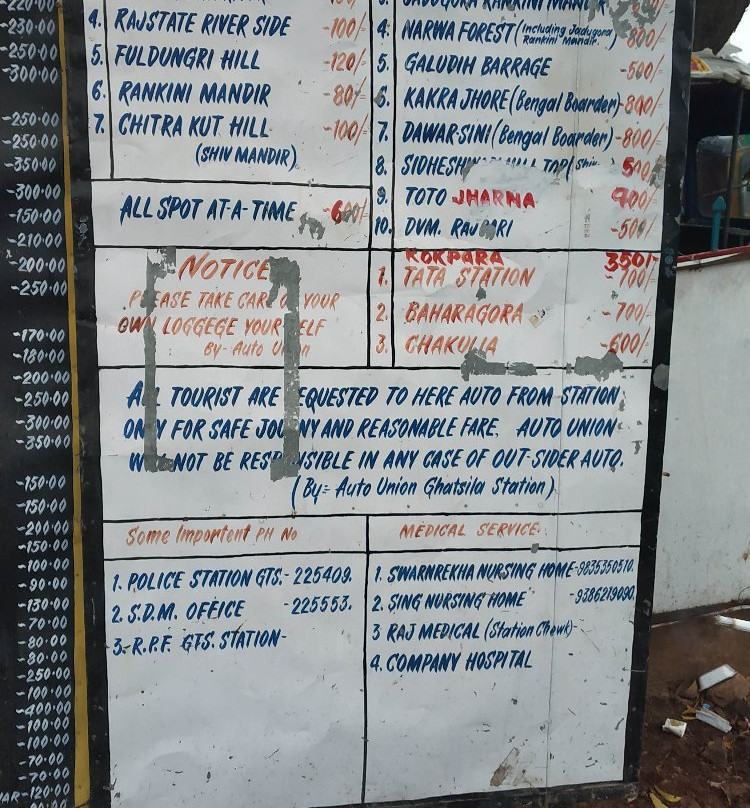 -220.00
-230.00
-250.00
-300.00
-250.00
-250.00
-350.00
-300.00
-150.00
-210.00
-200.00
-250.00
-170.00
-180.00
-200.00
-250.00
-300.00
-350.00
-150.00
-150.00
-200.00
-150.00
-100.00
-90.00
-130.00
-70.00
-80.00
-80.00
-250.00
-100.00
-400.00
-100.00
-100.00
-70.00
-70.00
-120.00
4. RAJSTATE RIVER SIDE -100/-
5. FULDUNGRI HILL -120/-
6. RANKINI MANDIR -80/-
7. CHITRA KUT HILL -100/-
(SHIV MANDIR)
ALL SPOT AT-A-TIME -600/-
4. NARWA FOREST (Including Jadugora Rankini Mandir. -800/-
5. GALUDIH BARRAGE -500/-
6. KAKRA JHORE (Bengal Boarder) -800/-
7. DAWAR-SINI (Bengal Boarder) -800/-
8. TOP 500/-
9. TOTO JHARNA 900/-
10. DVM. -500/-
NOTICE
PLEASE TAKE CARE OF YOUR
OWN LOGGEGE YOUR SELF
By- Auto Union
KOKPARA 350/-
1. TATA STATION -700/-
2. BAHARAGORA -700/-
3. CHAKULIA -600/-
ALL TOURIST ARE REQUESTED TO HERE AUTO FROM STATION
ONLY FOR SAFE JOURNY AND REASONABLE FARE. AUTO UNION
WILL NOT BE RESPONSIBLE IN ANY CASE OF OUT-SIDER AUTO.
(By:- Auto Union Ghatsila Station)
Some Important PH No
1. POLICE STATION GTS.- 225409.
2. S.D.M. OFFICE -225553.
3.-R.P.F. GTS. STATION-
MEDICAL SERVICE
1. SWARNREKHA NURSING HOME-9835350510.
2. SING NURSING HOME -9386219090.
3 RAJ MEDICAL (Station Chowk)
4. COMPANY HOSPITAL